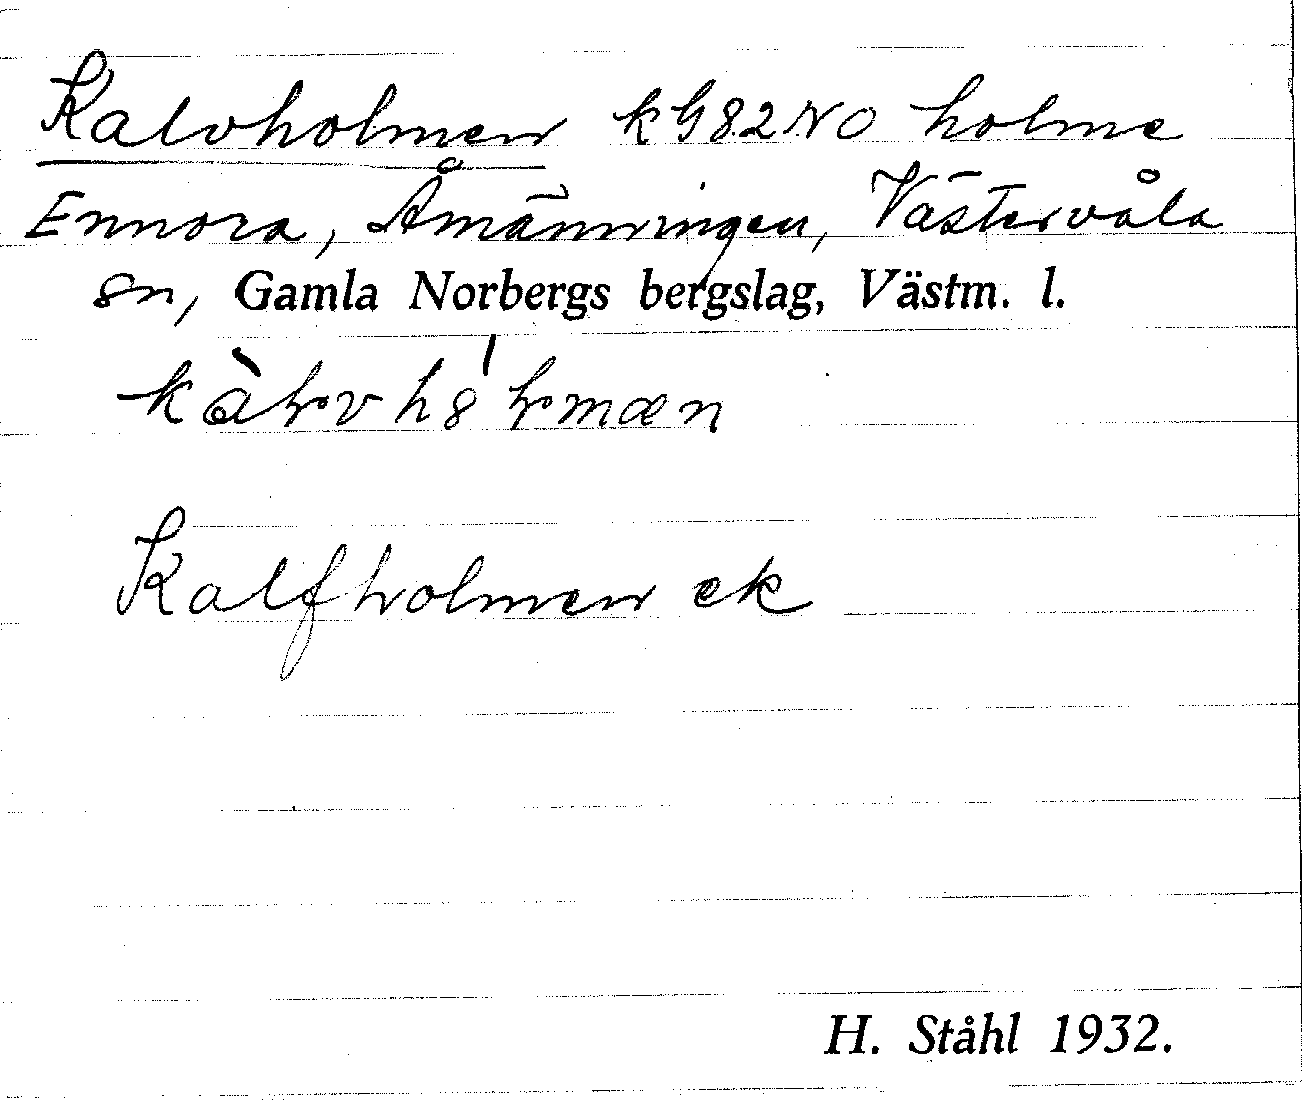 Kalvholmen k G82NO holme
Ennora, Åmänningen, Västervåla
sn, Gamla Norbergs bergslag, Västm. l.
Kalfholmen ek
H. Ståhl 1932.